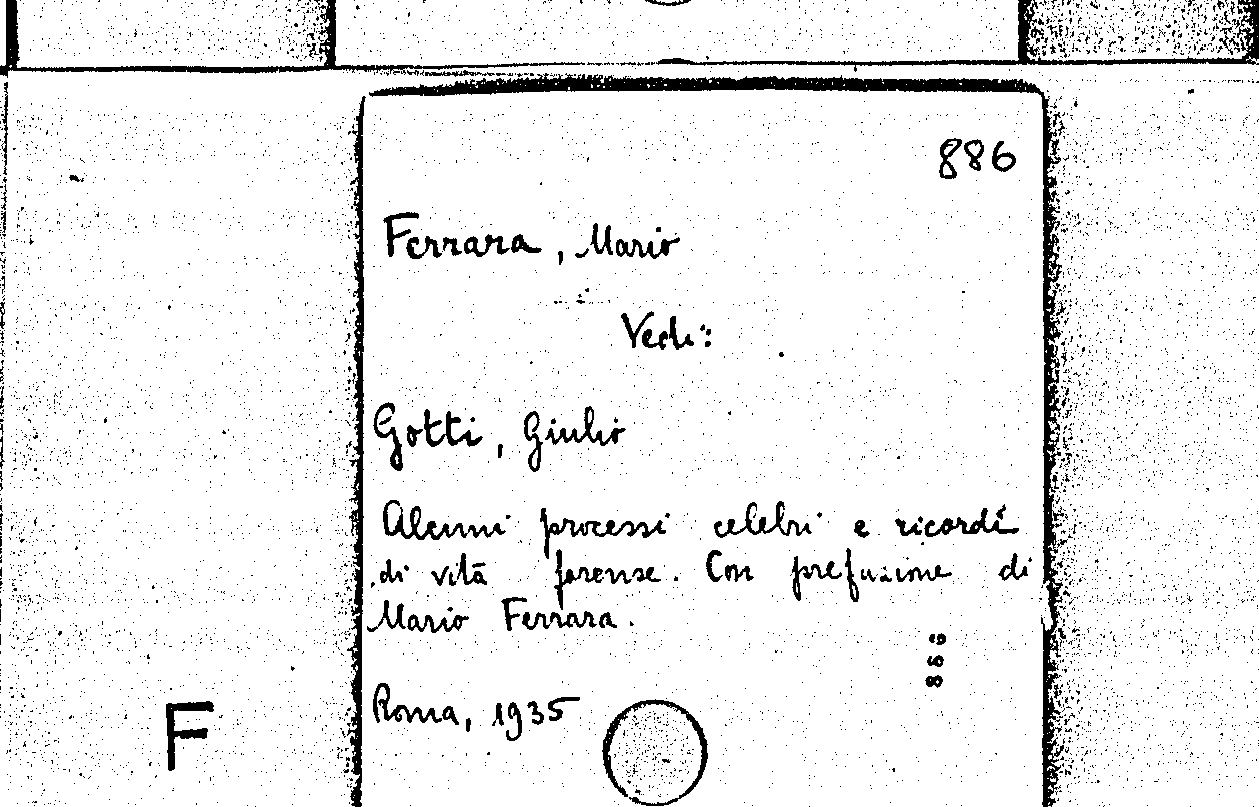 886
Ferrara, Mario
Vedi:
Gotti, Giulio
Alcuni processi celebri e ricordi
di vita forense. Con prefazione di
Mario Ferrara.
866
Roma, 1935
F